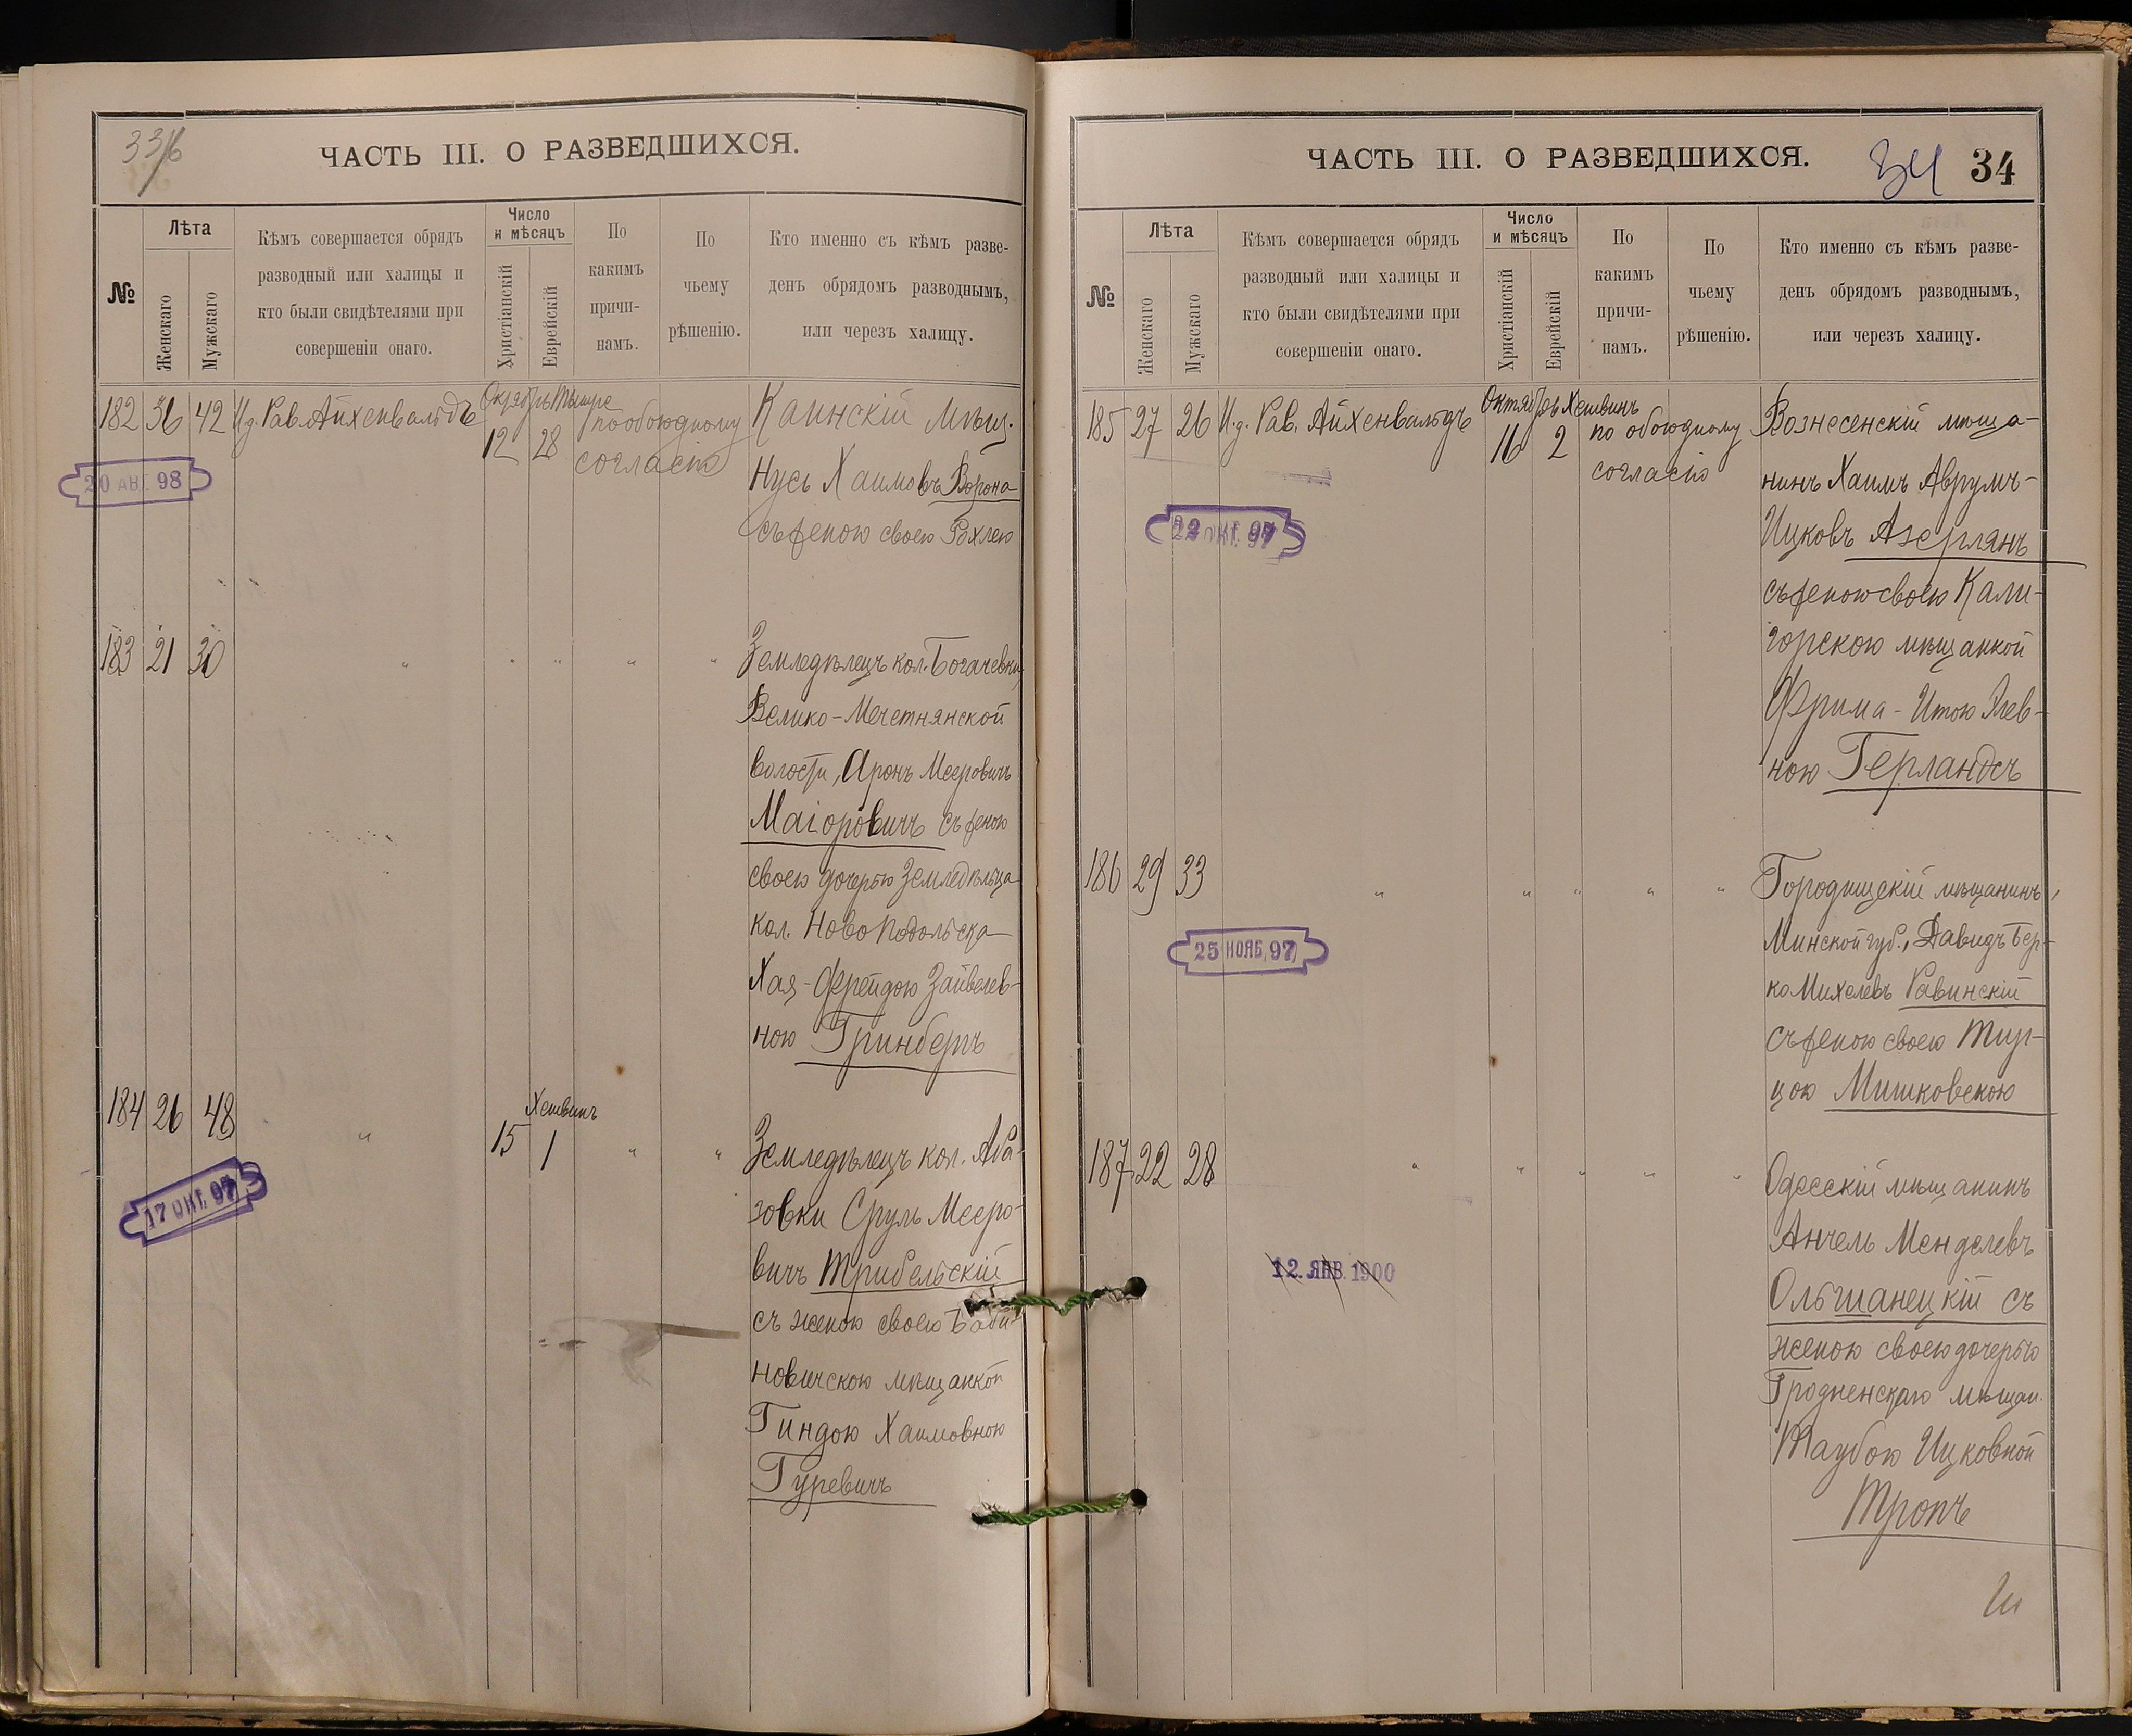 33/б
ЧАСТЬ III. О РАЗВЕДШИХСЯ.
№
Лѣта
Женскаго
Мужскаго
Кѣмъ совершается обрядъ
разводный или халицы и
кто были свидѣтелями при
совершеніи онаго.
Число
и мѣсяцъ
Христіанскій
Еврейскій
По
какимъ
причи-
намъ.
По
чьему
рѣшенію.
Кто именно съ кѣмъ разве-
денъ обрядомъ разводнымъ,
или черезъ халицу.
182 36 42 И.д. Рав. Айхенвальдъ
Октябрь Тышре
12 28
по обоюдному
согласію
Каинскій мѣщ.
Нусь Хаимовъ Ворона
съ женою своею Рохлею
20 АВГ. 98
183 21 30 " " " " "
Земледѣлецъ кол. Богачевки,
Велико-Мечетнянской
волости, Аронъ Мееровичъ
Маіоровичъ съ женою
своею дочерью Земледѣльца
кол. Ново Подольска
Хая-Фрейдою Зайвелев-
ною Гринбергъ
184 26 48 "
Хешвинъ
15 1 " "
Земледѣлецъ кол. Аба-
зовки Сруль Мееро-
вичъ Трибельскій
съ женою своею Баби-
новичскою мѣщанкой
Гиндою Хаимовною
Гуревичъ
17 ОКТ. 97
ЧАСТЬ III. О РАЗВЕДШИХСЯ.
34 34
№
Лѣта
Женскаго
Мужскаго
Кѣмъ совершается обрядъ
разводный или халицы и
кто были свидѣтелями при
совершеніи онаго.
Число
и мѣсяцъ
Христіанскій
Еврейскій
По
какимъ
причи-
намъ.
По
чьему
рѣшенію.
Кто именно съ кѣмъ разве-
денъ обрядомъ разводнымъ,
или черезъ халицу.
185 27 26 И.д. Рав. Айхенвальдъ
Октябрь Хешвинъ
16 2
по обоюдному
согласію
Вознесенскій мѣща-
нинъ Хаимъ Аврумъ-
Ицковъ Азерлянъ
съ женою своею Кали-
горскою мѣщанкой
Фрима-Итою Элев-
ною Герландсъ
22 ОКТ. 97
186 29 33 " " " " "
Городищскій мѣщанинъ,
Минской губ., Давидъ Бер-
ко Михелевъ Равинскій
съ женою своею Тир-
цою Мишковскою
25 НОЯБ. 97
187 22 28 " " " " "
Одесскій мѣщанинъ
Анчель Менделевъ
Ольшанецкій съ
женою своею дочерью
Гродненскаго мѣщан.
Таубою Ицковной
Тропъ
12. ЯНВ. 1900